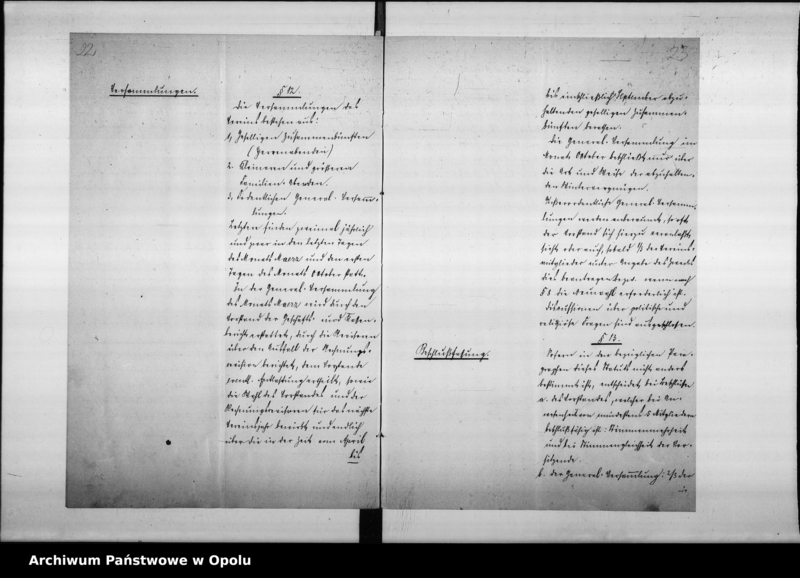 22.
Versammlungen.
§ 12.
Die Versammlungen des
Vereins bestehen aus:
1, Geselligen Zusammenkünften
(Herrenabenden)
2. Kleineren und größeren
Familien-Abenden.
3. Ordentlichen General-Versamm-
lungen.
Letztere finden zweimal jährlich
und zwar in den letzten Tagen
des Monats Maerz und den ersten
Tagen des Monats October statt.
In der General-Versammlung
des Monats Maerz wird durch den
Vorstand der Geschäfts- und Kassen-
bericht erstattet, durch die Revisoren
über den Ausfall der Rechnungs-
revision berichtet, dem Vorstande
Entlastung ertheilt, sowie
die Wahl des Vorstandes und der
Rechnungsrevisoren für das nächste
Vereinsjahr bewirkt und endlich
über die in der Zeit vom April
bis
23.
bis einschließlich September abzu-
haltenden geselligen Zusammen-
künften berathen.
Die General-Versammlung im
Monat October beschließt nur über
die Art und Weise der abzuhalten-
den Wintervergnügen.
Außerordentliche General-Versamm-
lungen werden anberaumt, so oft
der Vorstand sich hierzu veranlaßt
sieht oder auch, sobald 1/4 der Vereins-
mitglieder unter Angabe des Zwecks
dies beantragen bezw. wenn nach
§ 8 die Neuwahl erforderlich ist.
Discussionen über politische und
religiöse Fragen sind ausgeschlossen.
§ 13.
Beschlußfassung.
Sofern in den bezüglichen Para-
graphen dieses Statuts nicht anders
bestimmt ist, entscheidet bei Beschlüssen
a. des Vorstandes, welcher bei An-
wesenheit von mindestens 5 Mitgliedern
beschlußfähig ist: Stimmenmehrheit
und bei Stimmengleichheit der Vor-
sitzende.
b. der General-Versammlung: ist der
Archiwum Państwowe w Opolu